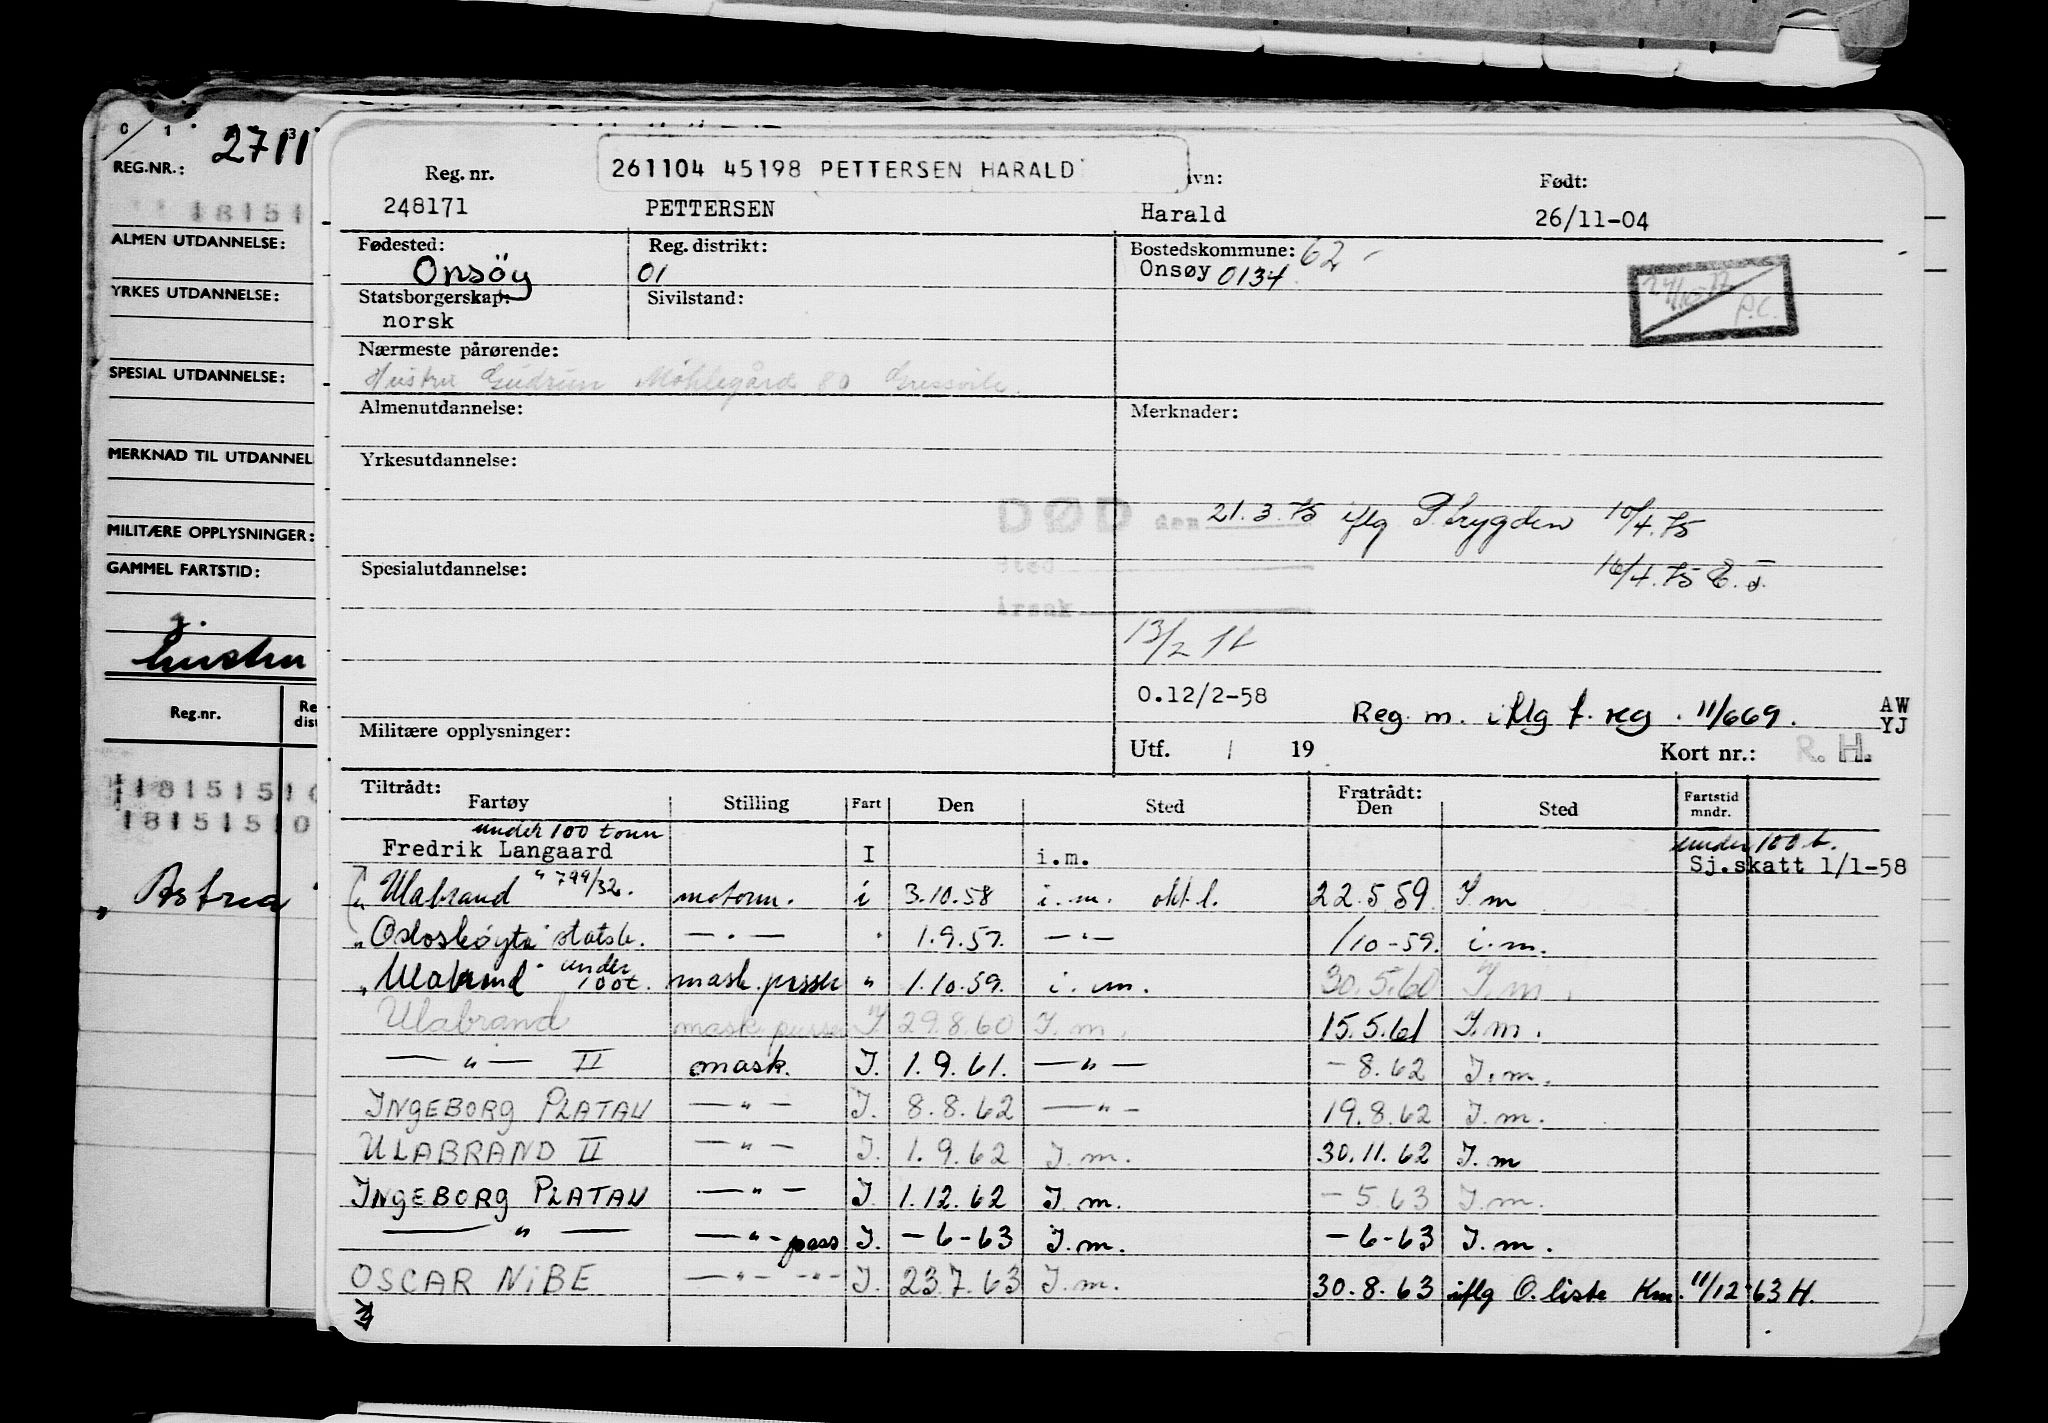 C 1 3
REG.NR.: 2711
18151
ALMEN UTDANNELSE:
YRKES UTDANNELSE:
SPESIAL UTDANNELSE:
MERKNAD TIL UTDANNEL
MILITÆRE OPPLYSNINGER:
GAMMEL FARTSTID:
Reg.nr. Re
dist
18151510
18151510
" Astrea "
261104 45198 PETTERSEN HARALD
Reg. nr. vn: Født:
248171 PETTERSEN Harald 26/11-04
Fødested: Reg. distrikt: Bostedskommune: 62
Onsöy 01 Onsøy 0134
Statsborgerskap: Sivilstand:
norsk
P.C.
Nærmeste pårørende:
Hustru Gudrun Möklegård 80 Gressvik
Almenutdannelse: Merknader:
Yrkesutdannelse:
DØD den 21.3.75 iflg P.trygden 10/4.75
Sted 16/4.75
Spesialutdannelse:
Årsak
13/2
O.12/2-58
Reg. m. iflg f. reg. 11/669. AW
YJ
Militære opplysninger: Utf. / 19 Kort nr.: R. H.
Tiltrådt: Fratrådt:
Fartøy Stilling Fart Den Sted Den Sted Fartstid mndr.
under 100 tonn under 100 t.
Fredrik Langaard I i.m. Sj.skatt 1/1-58
Ulabrand " 799/32. motorm. i 3.10.58 i.m. okt l. 22.5.59. I.m
" Osloskøyta" statsk. — . — " 1.9.57. — " — /10-59. i.m.
" Ulabrand " under 100t. mask. passer " 1.10.59. i.m. 30.5.60 I.m.
Ulabrand mask. passer I 29.8.60 I.m. 15.5.61 I.m.
— " — II mask. I. 1.9.61. — " — - 8.62 I.m.
INGEBORG PLATAU — " — I. 8.8.62 — " — 19.8.62 I.m.
ULABRAND II — " — I. 1.9.62 I.m. 30.11.62 I.m
INGEBORG PLATAU — " — I. 1.12.62 I.m. - 5.63 I.m.
— " — — " — pass I. - 6-63 I.m. - 6-63 I.m.
OSCAR NIBE — " — — " — I. 23.7.63 I.m. 30.8.63 iflg O.liste Km. 11/12-63 H.